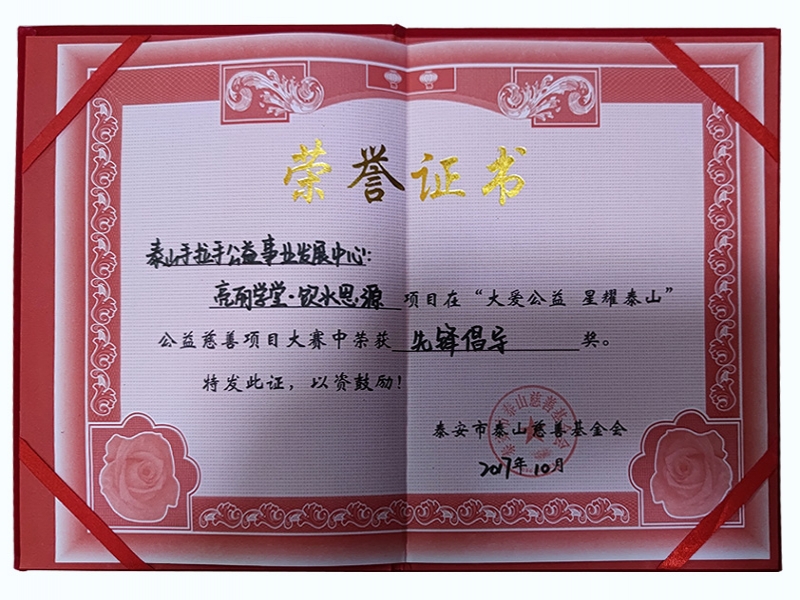 荣誉证书
泰山手拉手公益事业发展中心:
亮丽学堂·饮水思源 项目在“大爱公益 星耀泰山”
公益慈善项目大赛中荣获 先锋倡导 奖。
特发此证，以资鼓励！
泰安市泰山慈善基金会
2017年10月